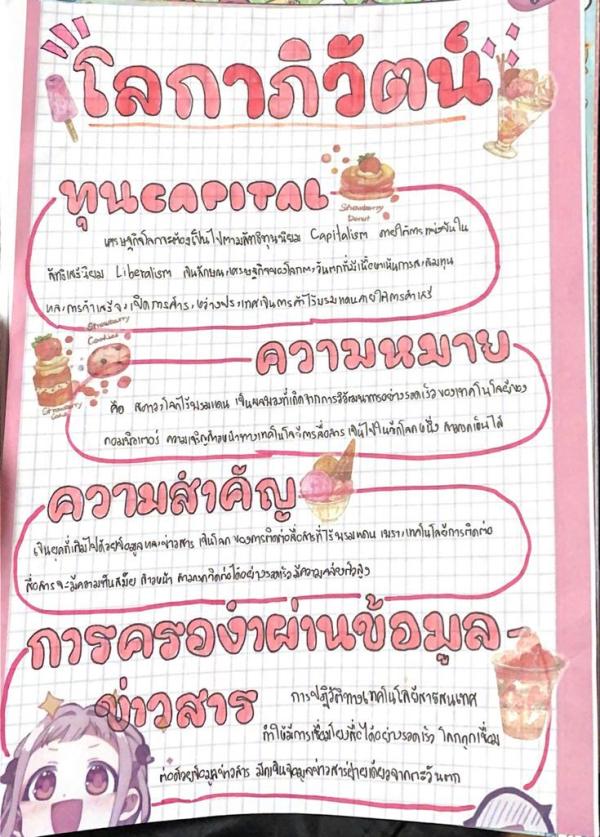 โลกาภิวัตน์
ทุนCAPITAL
Strawberry Donut
เศรษฐกิจโลกจะต้องเป็นไปตามลัทธิทุนนิยม Capitalism ภายใต้การแข่งขันใน
ลัทธิเสรีนิยม Liberalism เศรษฐกิจของโลกตะวันตกที่มีเน้นการสะสมทุน
และการค้าเสรีจะเปิดการค้าระหว่างประเทศเป็นการค้าไร้พรมแดนภายใต้การค้าเสรี
Strawberry Cookies
ความหมาย
Strawberry
คือ สภาวะโลกไร้พรมแดน เป็นผลพวงที่เกิดจากการวิวัฒนาการอย่างรวดเร็วของเทคโนโลยีของ
คอมพิวเตอร์ ความเจริญก้าวหน้าทางเทคโนโลยีการสื่อสาร เป็นไปในทั่วโลก
ความสำคัญ
เป็นยุคที่เต็มไปด้วยข้อมูลและข่าวสาร เป็นโลกของการติดต่อสื่อสารที่ไร้พรมแดน เพราะเทคโนโลยีการติดต่อ
สื่อสารจะมีความทันสมัย ก้าวหน้า สามารถติดต่อได้อย่างรวดเร็วมีความคล่องตัวสูง
การครองงำผ่านข้อมูล
ข่าวสาร
การปฏิวัติทางเทคโนโลยีสารสนเทศ
ทำให้มีการเชื่อมโยงสื่อได้อย่างรวดเร็ว โลกถูกเชื่อม
ต่อด้วยข้อมูลข่าวสาร มักเป็นข้อมูลข่าวสารฝ่ายเดียวจากตะวันตก